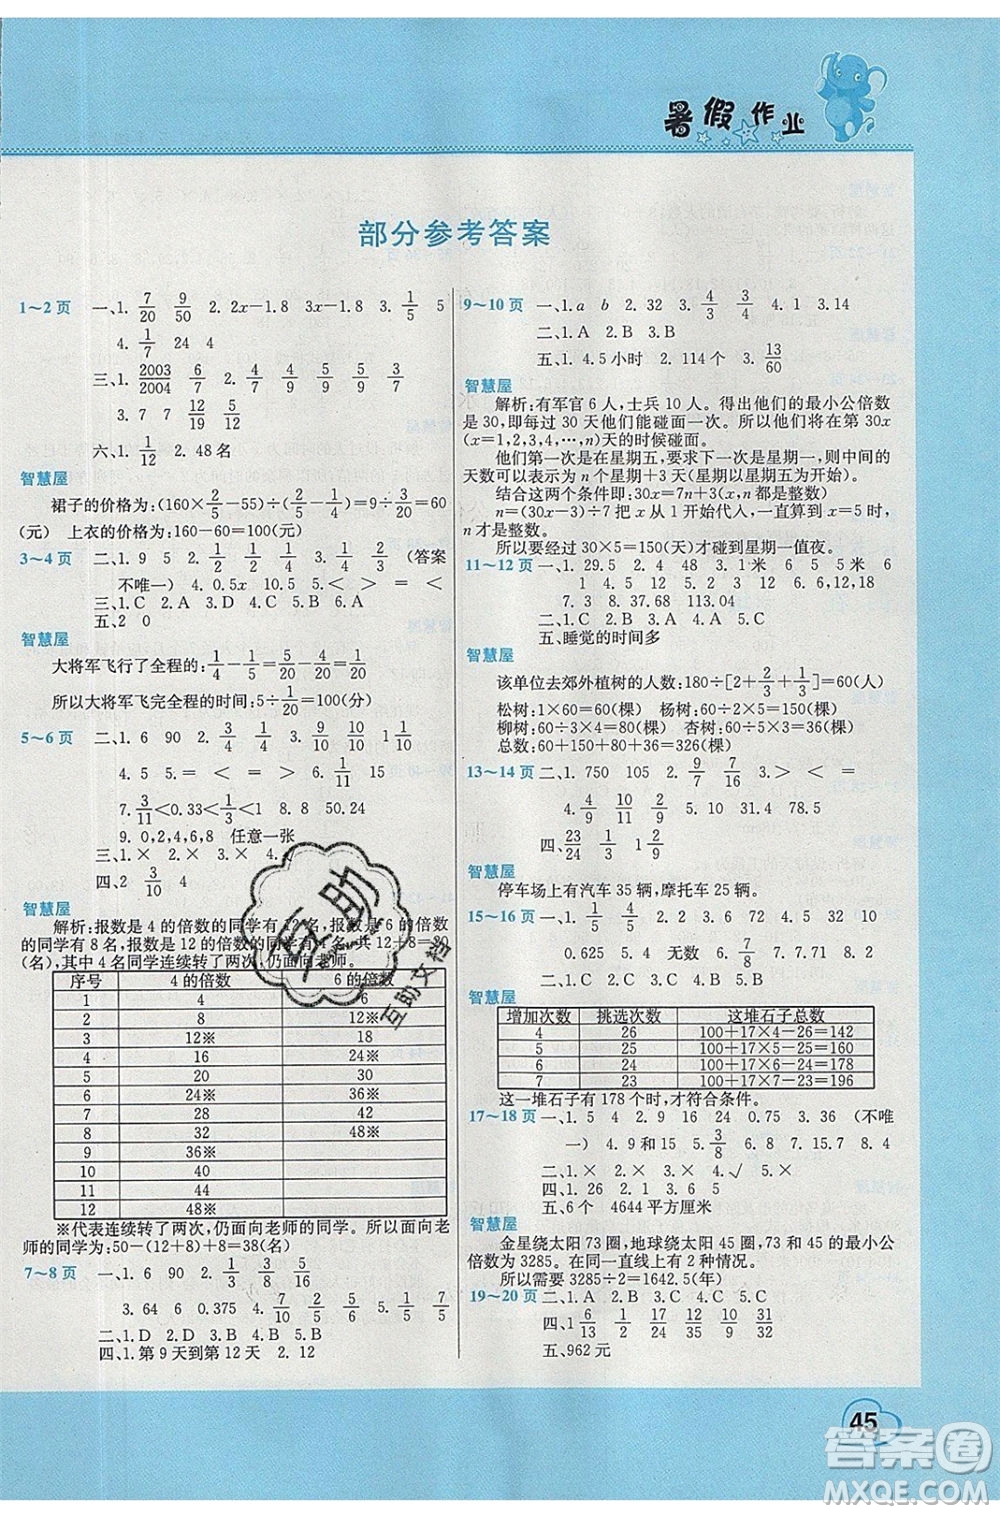 暑假作业
部分参考答案
1～2页 一、1. 7/20 9/50 2. 2x－1.8 3x－1.8 3. 1/5 5
4. 1/7 24 4
三、1. 2003/2004 6/7 2. 4/9 4/5 4/9 4/5
3. 7 7 12/19 5/12
六、1. 1/12 2. 48名
智慧屋
裙子的价格为：(160×2/5－55)÷(2/5－1/4)＝9÷3/20＝60
(元) 上衣的价格为：160－60＝100(元)
3～4页 二、1. 9 5 2. 1/2 1/2 1/2 3. 1/3 1/4 (答案
不唯一) 4. 0.5x 10 5. ＜ ＞ ＝ ＜
三、1. C 2. A 3. D 4. C 5. B 6. A
五、2 0
智慧屋
大将军飞行了全程的：1/4－1/5＝5/20－4/20＝1/20
所以大将军飞完全程的时间：5÷1/20＝100(分)
5～6页 二、1. 6 90 2. 3/4 1/4 3. 9/10 9/10 1 1/10
4. 5 5. ＝ ＞ ＜ ＞ 6. 1/11 15
7. 3/11＜0.33＜1/3＜1 8. 8 50.24
9. 0,2,4,6,8 任意一张
三、1. × 2. × 3. × 4. ×
四、2 3/10 4
智慧屋
解析：报数是 4 的倍数的同学有 12 名，报数是 6 的倍数
的同学有 8 名，报数是 12 的倍数的同学有 4 名，共 12＋8＝20
(名)，其中 4 名同学连续转了两次，仍面向老师。
序号 4 的倍数 6 的倍数
1 4 6
2 8 12※
3 12※ 18
4 16 24※
5 20 30
6 24※ 36※
7 28 42
8 32 48※
9 36※
10 40
11 44
12 48※
※代表连续转了两次，仍面向老师的同学。所以面向老
师的同学为：50－(12＋8)＋8＝38(名)
7～8页 一、1. 6 90 2. 1/3 3/8 5/16
3. 64 6 0.375 4. 7/10 2/5 6/5 5. 1/5 7/5
二、1. D 2. D 3. B 4. B 5. B
四、1. 第 9 天到第 12 天 2. 12
9～10页 一、1. a b 2. 32 3. 4/3 3/4 4. 1 3.14
二、1. A 2. B 3. B
五、1. 4.5 小时 2. 114 个 3. 13/60
智慧屋
解析：有军官 6 人，士兵 10 人。得出他们的最小公倍数
是 30，即每过 30 天他们能碰面一次。所以他们将在第 30x
(x＝1,2,3,4,…,n)天的时候碰面。
他们第一次碰面是在星期五，要求下一次是星期一，则中间的
天数可以表示为 n 个星期＋3 天(星期以星期五为开始)。
结合这两个条件即：30x＝7n＋3(x，n 都是整数)
n＝(30x－3)÷7 把 x 从 1 开始代入，一直算到 x＝5 时，
n 才是整数。
所以要经过 30×5＝150(天)才碰到星期一值夜。
11～12页 一、1. 29.5 2. 4 48 3. 1 米 6 5 米 6
1 4. 1 2 3 4 6 12 5. 9 6. 6,12,18
7. 3 8. 37.68 113.04
二、1. C 2. C 3. B 4. A 5. C
五、睡觉的时间多
智慧屋
该单位去郊外植树的人数：180÷[2＋2/3＋1/3]＝60(人)
松树：1×60＝60(棵) 杨树：60÷2×5＝150(棵)
柳树：60÷3×4＝80(棵) 杏树：60÷5×3＝36(棵)
总数：60＋150＋80＋36＝326(棵)
13～14页 二、1. 750 105 2. 9/7 7/16 3. ＞ ＜ ＝
4. 8/9 10/11 2/9 5. 10 31.4 78.5
四、23/24 1/2 1/9
智慧屋
停车场上有汽车 35 辆，摩托车 25 辆。
15～16页 一、1. 1/5 4/5 2. 9 3. 45 4. 5 32 10
0.625 5. 4 无数 6. 7/8 7. 71 8. 3
二、1. C 2. A 3. C
智慧屋
增加次数 挑选次数 这堆石子总数
4 26 100＋17×4－26＝142
5 25 100＋17×5－25＝160
6 24 100＋17×6－24＝178
7 23 100＋17×7－23＝196
这一堆石子有 178 个时，才符合条件。
17～18页 一、1. 5 4 2. 9 16 24 0.75 3. 36 (不唯
一) 4. 9 和 15 5. 3/8 6. 8 7. 15.7 8. 4
二、1. × 2. × 3. × 4. √ 5. ×
四、1. 26 2. 6 3. 6 4. 6 5. 2
五、6 个 4644 平方厘米
智慧屋
金星绕太阳 73 圈，地球绕太阳 45 圈，73 和 45 的最小公
倍数为 3285。在同一直线上有 2 种情况。
所以需要 3285÷2＝1642.5(年)
19～20页 二、1. A 2. C 3. B 4. C 5. B
四、1 6/13 1/2 13/16 7/10 31/32
五、962 元
互助
互助文档
45
答案圈
MXQE.COM